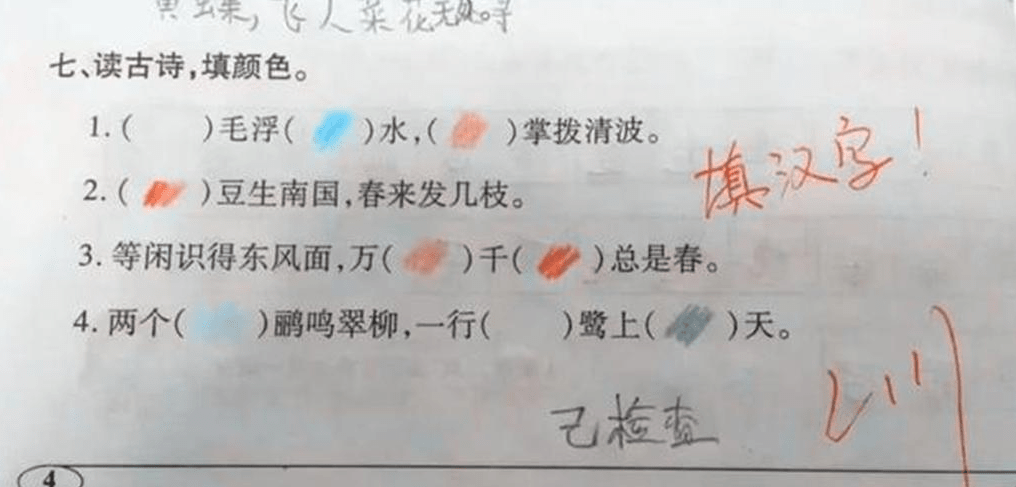 黄出来，飞人菜花无处寻
七、读古诗，填颜色。
1.(　　)毛浮(　　)水，(　　)掌拨清波。
填汉字！
2.(　　)豆生南国，春来发几枝。
3.等闲识得东风面，万(　　)千(　　)总是春。
4.两个(　　)鹂鸣翠柳，一行(　　)鹭上(　　)天。
己检查
4